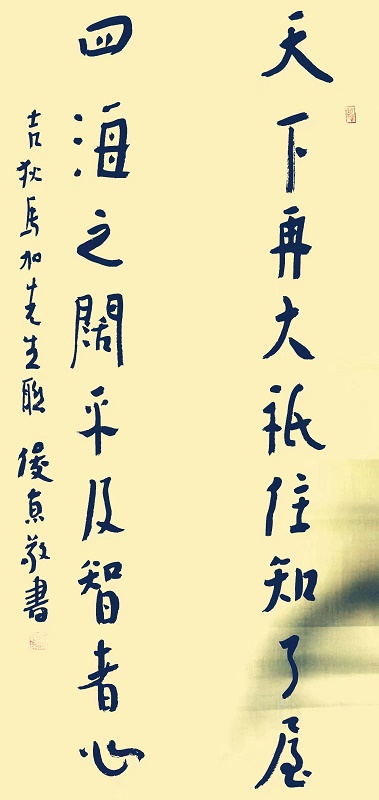 天下再大祇住知了屋
四海之闊平及智者心
吉狄馬加先生聯 敬書